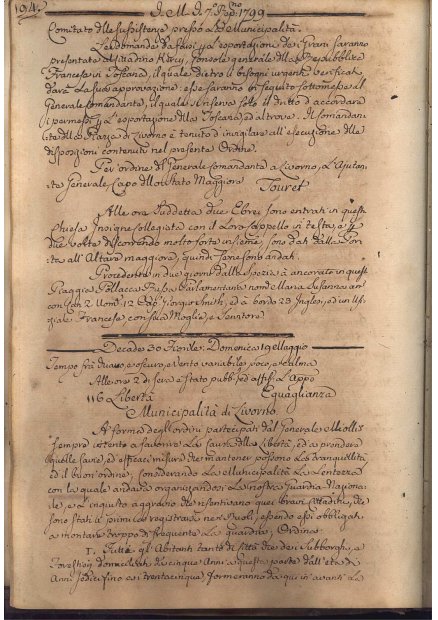 194.
J. M. J. 7. 1799
Comitato delle sussistenze presso la Municipalità.
Le domande da farsi p. la esportazione de' Grani saranno
presentate al Cittadino Console generale della Repubblica
Francese in Toscana, il quale dietro li bisogni urgenti verificati
darà la sua approvazione: esse saranno in seguito sottomesse al
Generale Comandante, il quale si riserva solo il dritto d'accordare
i permessi p. la esportazione dalla Toscana ed altrove. Il Comandan-
te della Piazza di Livorno è tenuto d'invigilare all'esecuzione delle
disposizioni contenute nel presente Ordine.
Per ordine del Generale Comandante a Livorno, L'Ajutan-
te Generale Capo dello Stato Maggiore Touret
Alle ore suddetta due Ebrei sono entrati in questa
Chiesa Insigne Collegiata con il Loro Cappello in testa, e p.
due volte discorrendo molto forte insieme, sono dalla Por-
ta all'Altare maggiore, quindi se ne sono andati.
Procedente in due giorni dalla Spezia à ancorato in questa
Piaggia Pollacca Parlamentaria nome Maria Susanna
con Can. 2 Uom. 12 Cap. Giorgio Smith, ed à bordo 23 Inglesi, ed un Uffi-
ziale Francese con sua Moglie, e Servitore.
Decade 30 Fiorile: Domenica 19 Maggio
Tempo frà Chiaro, e oscuro, e Vento variabile, poco, e calma
Alle ore 2 di sera è stato pubb. ed affisso l'App.
116 Libertà Eguaglianza
Municipalità di Livorno.
A forma degli ordini partecipati dal Generale Miollis
sempre intento a favorire La Causa della Libertà, ed a prendere
quelle savie, ed efficaci misure che mantener possono La tranquillità
ed il buon ordine; considerando La Municipalità La Lentezza
con la quale andava organizzandosi La nostra Guardia Naziona-
le, e l'ingiusto aggravio che risentivano quei bravi Cittadini, che
sono stati i primi a registrarsi nei Ruoli, essendo essi obbligati
a montare troppo di frequente La Guardia; Ordina
I. Tutti gl'Abitanti tanto di Città che dei Subborghi, e
Forestieri domiciliati da cinque Anni a questa parte dall'età di
Anni sedici fino ai trentacinque formeranno da qui in avanti La